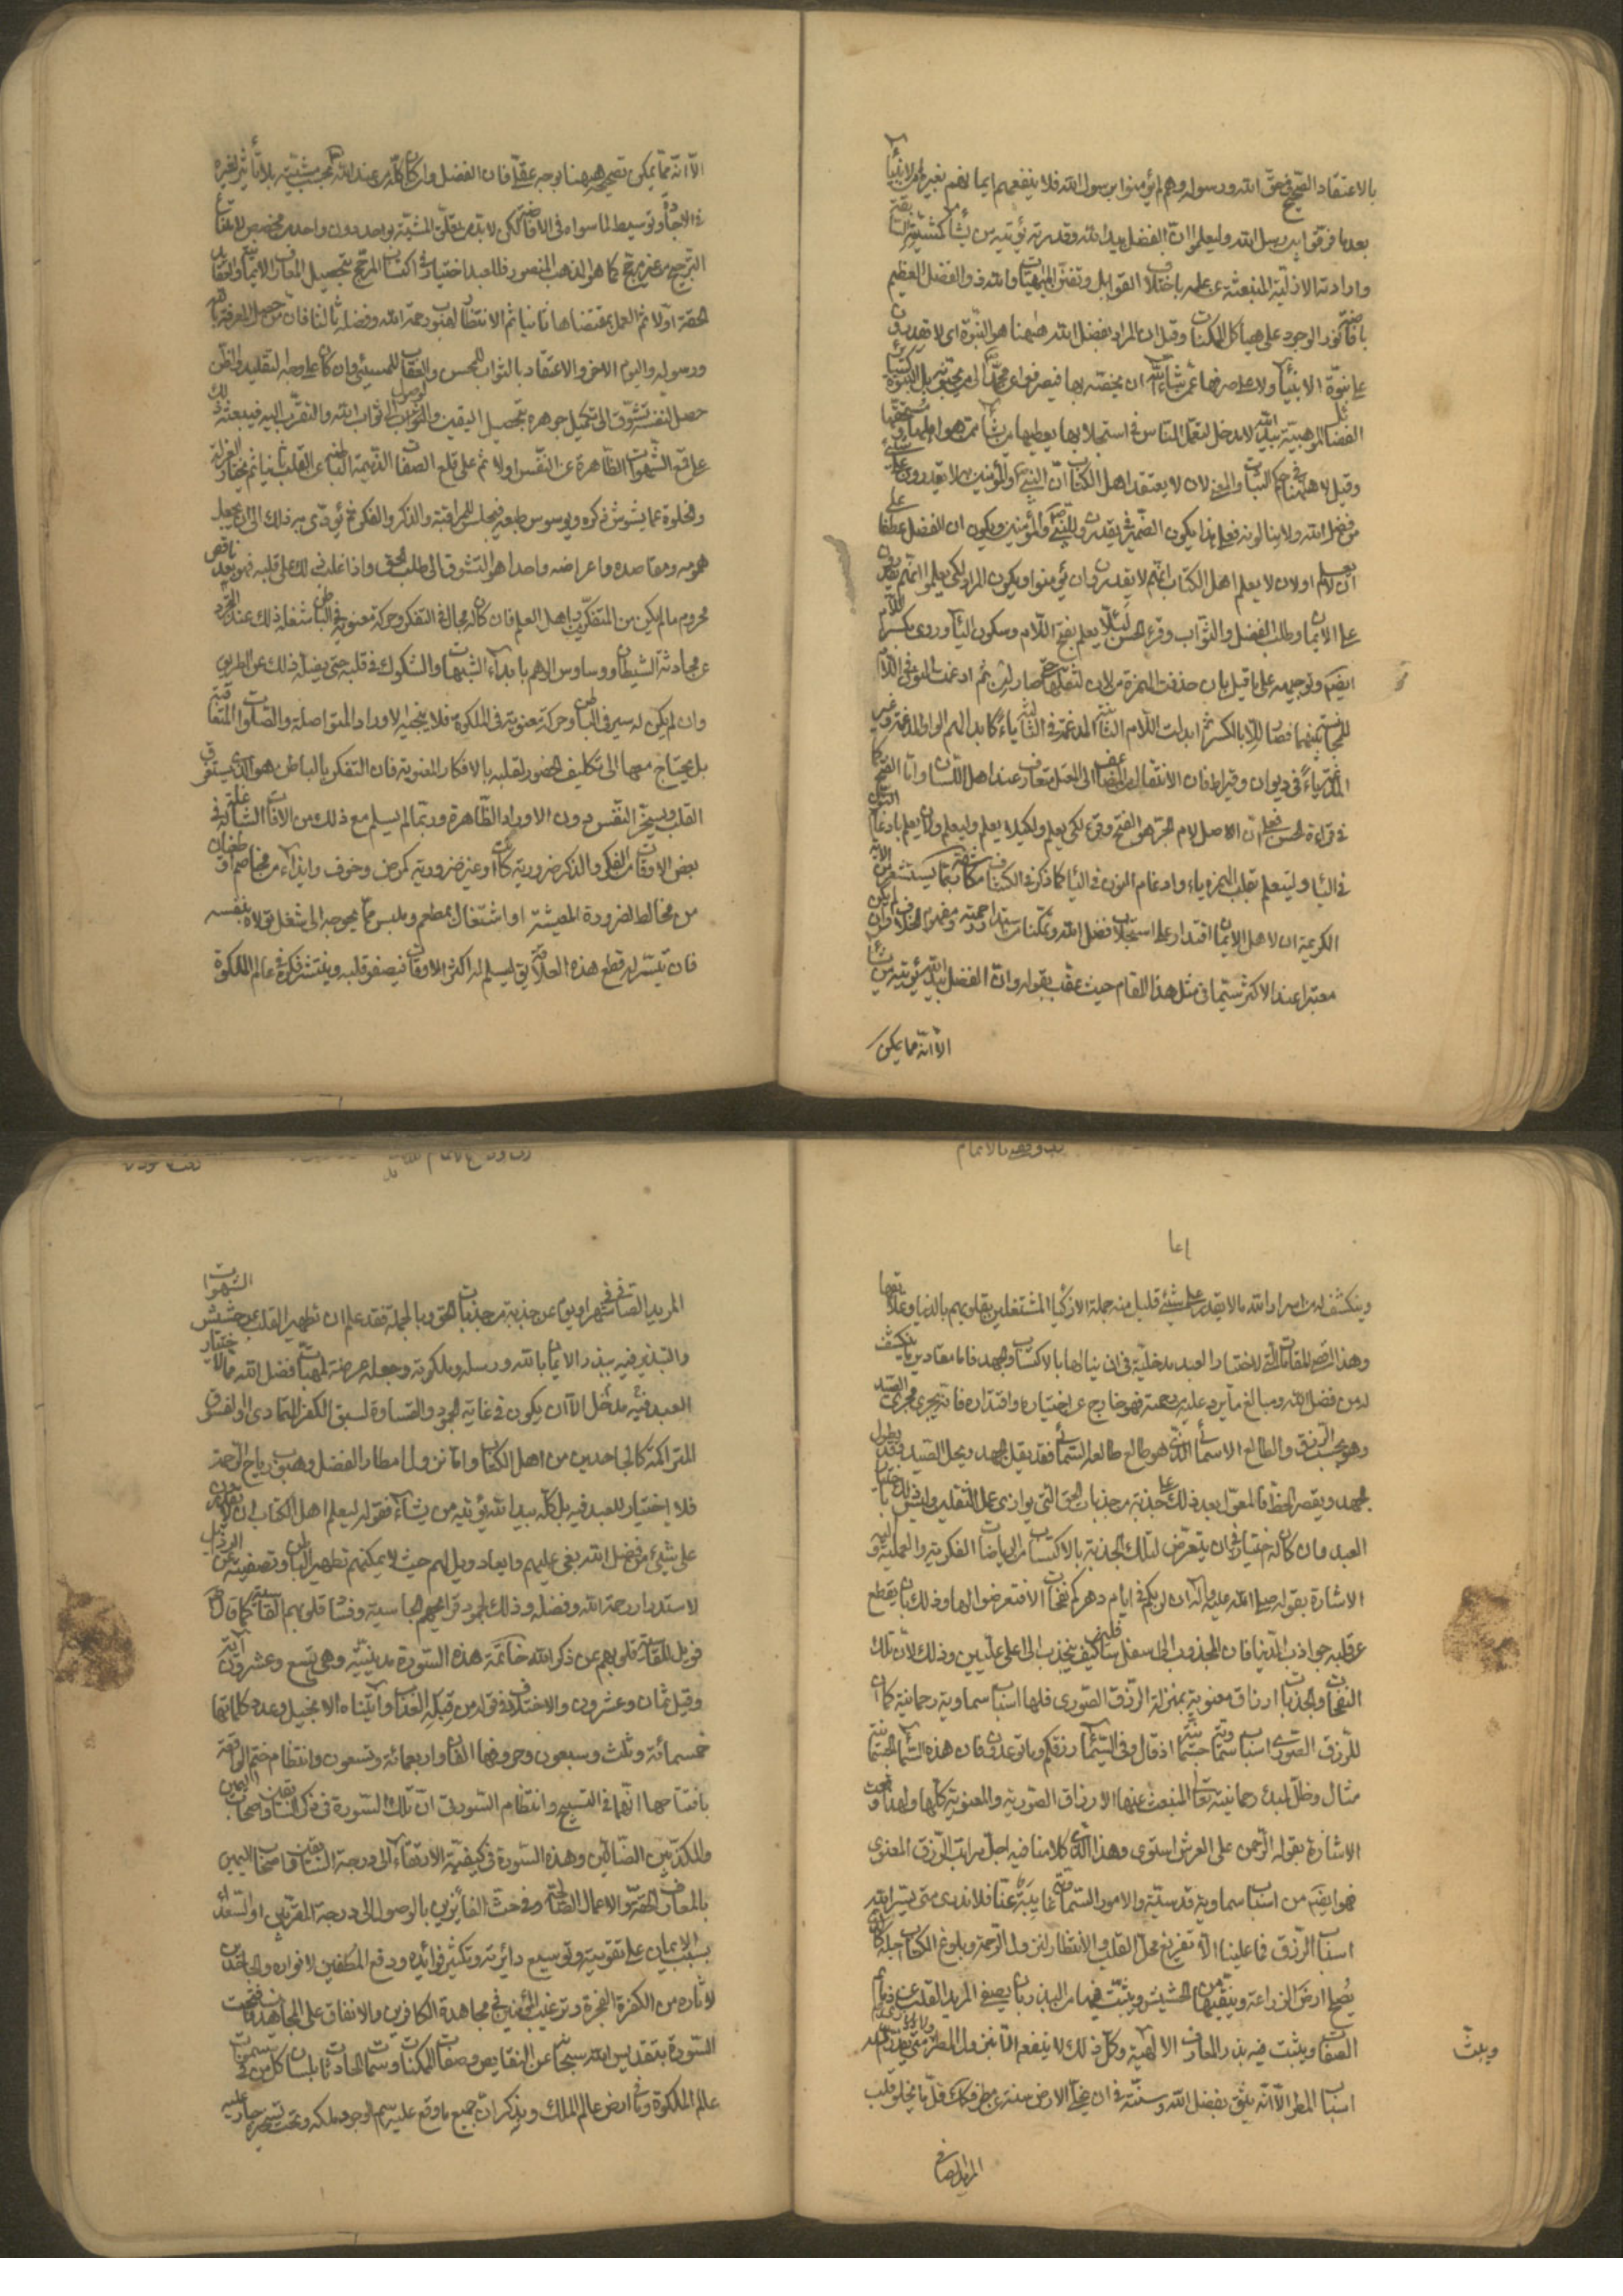 بالاعتقاد الصحيح في حق الله ورسوله وهم لم يؤمنوا برسول الله فلا ينفعهم ايمانهم بغيره من الانبياء
بعد ما فرقوا بين رسل الله وليعلموا ان الفضل بيد الله وقدرته يؤتيه من يشاء كمشيته السابقة
وارادته الازلية المنبعثة عن علمه باختلاف القوابل وتفنن المهيات والله ذو الفضل العظيم
بافاضة نور الوجود على هياكل الممكنات وقيل ان المراد بفضل الله ههنا هو النبوة اى لا يقدرون
على نبوة الانبياء ولا على صرفها عمن شاء الله ان يخصه بها فيصرفوها عن محمد الى من يحبونه بل النبوة
الفضائل الموهبية بيد الله لا مدخل لتعمل الناس في استجلابها يعطيها من يشاء ممن هو اهلها
وقيل لا ههنا في حكم الثبات والمعنى لان لا يعتقد اهل الكتاب ان النبي والمؤمنين لا يقدرون على شئ
من فضل الله ولا ينالونه فعلى هذا يكون الضمير في يقدرون للنبي والمؤمنين ويكون ان الفضل عطفا على
ان لا يعلم او لان لا يعلم اهل الكتاب انهم لا يقدرون ان يؤمنوا ويكون المراد لكى يعلموا انهم يقدرون
على الايمان وطلب الفضل والثواب وقرء الحسن ليلا يعلم بفتح اللام وسكون الياء وروى بكسر اللام
ايضا وتوجيهه على ما قيل بان حذفت الهمزة من لان لثقلها حتى صار لن ثم ادغمت النون في اللام
للمجانسة بينهما فصار للا بالكسر ثم ابدلت اللام الثانية المدغمة في الثالثة ياء كما بدالهم الواو المدغمة وغير
المدغم ياء في ديوان وقيراط فان الانتقال من المضاعف الى المعتل متعارف عند اهل اللسان واما الفتح كما
في قراءة الحسن فعلى ان الاصل لام الجر هو الفتح وقرء لكى يعلم ولكيلا يعلم وليعلم ولان يعلم بادغام النون
في الياء ولينعلم بقلب الهمزة ياء وادغام النون في الياء كما ذكر في الكشاف مكاشفة مما يستشعر من الاية
الكريمة ان لاهل الايمان اقتدار على استجلاب فضل الله وتمكنا من استدرار رحمته ومفهوم الخلاف وان لم يكن
معتبرا عند الاكثر سيما في مثل هذا المقام حيث عقب بقوله وان الفضل بيد الله يؤتيه من يشاء
الا انه مما يمكن
الا انه مما يمكن تصحيحه ههنا بوجه عقلى فان الفضل وان كان كله من عند الله بحسب مشيته بلا تأثير لغيره
في الايجاد وتوسيط لما سواه في الافاضة لكن لا بد من تعلق المشية بواحد دون واحد من مخصص لامتناع
الترجيح من غير مرجح كما هو المذهب المنصور فللعبد اختيار في اكتساب المرجح بتحصيل المعارف الايمانية والعقائد
الحقة اولا ثم العمل بمقتضاها ثانيا ثم الانتظار لهبوب رحمة الله وفضله ثالثا فان من حصل المعرفة بالله
ورسوله واليوم الاخر والاعتقاد بالثواب للمحسن والعقاب للمسيئ وان كان على وجه التقليد والظن
حصل لنفسه تشوق الى تكميل جوهره بتحصيل اليقين والوصول الى ثواب الله والتقرب اليه فيبعثه ذلك
على قمع الشهوات الظاهرة عن النفس اولا ثم على قلع الصفات الذميمة الباطنة عن القلب ثانيا ثم يختار العزلة
والخلوة عما يشوش ذكره ويوسوس طبعه فيجلس للمراقبة والذكر والفكر ثم يؤدى به ذلك الى ان يجعل
همومه ومقاصده واعراضه واحدا هو التشوق الى طلب الحق واذا غلب ذلك على قلبه فهو بعد ناقص
محروم ما لم يكن من المتفكرين اهل العلم فان كان له مجال في التفكر وحركة معنوية في الباطن شغله ذلك عند التجرد
عن مجادثة الشيطان ووساوس الوهم بابداء الشبهات والشكوك في قلبه حتى يضله ذلك عن الطريق
وان لم يكن له سير في الباطن وحركة معنوية في الملكوت فلا ينجيه الاوراد المتواصلة والصلوات المتعاقبة
بل يحتاج معها الى تكليف الحضور لقلبه بالافكار المعنوية فان التفكر بالباطن هو الذى يستغرق
القلب ويسخر النفس دون الاوراد الظاهرة وربما لم يسلم مع ذلك من الافات الشاغلة في
بعض الاوقات من الفكر والذكر ضرورية كانت او غير ضرورية كمرض وخوف وايذاء من مخاصم او طغيان
من مخالط لضرورة المعيشة او اشتغال بمطعم وملبس مما يحوجه الى شغل تولاه بنفسه
فان تيسر له قطع هذه العلايق ليسلم له اكثر الاوقات فيصفو قلبه وينتشر فكره في عالم الملكوت
ويتكشف له من اسرار الله ما لا يقدر على شئ قليل منه جملة الاذكياء المشتغلين بقلوبهم بالدنيا وعلايقها
وهذا اقصى المقامات التى لاختيار العبد مدخلية في ان ينالها بالاكتساب والجهد فاما مقادير ما ينكشف
له من فضل الله ومبالغ ما يرد عليه من رحمته فهو خارج عن اختياره واقتداره فانه يجرى مجرى الصيد
وهو بحسب الرزق والطالع الاسمائى الذى هو طالع طالعه السمائى فقد يقل الجهد ويجل الصيد وقد يطول
الجهد ويقصر الحظ فالمعول بعد ذلك على جذبة من جذبات الحق التى يوازى عمل الثقلين وليس ذلك باختيار
العبد وان كان له اختيار في ان يتعرض لتلك الجذبة بالاكتساب من الرياضات الفكرية والعملية واليه
الاشارة بقوله صلى الله عليه وآله ان لربكم في ايام دهركم نفحات الا فتعرضوا لها وذلك بان يقطع
عن قلبه جواذب الدنيا فان المجذوب الى سفل سافلين كيف ينجذب الى اعلى عليين وذلك لان تلك
النفحات والجذبات ارزاق معنوية بمنزلة الرزق الصورى فلها اسباب سماوية رحمانية كما ان
للرزق الصورى اسباب سماوية جسمانية اذ قال وفي السماء رزقكم وما توعدون فان هذه السماء الجسمانية
مثال وظل لمبدء رحمانيته تعالى المنبعث عنها الارزاق الصورية والمعنوية كلها ولهذا وقعت
الاشارة بقوله الرحمن على العرش استوى وهذا الذى كلامنا فيه اجل مراتب الرزق المعنوى
فهو ايضا من اسباب سماوية قدسية والامور السماوية غايبة عنا فلا ندرى متى تيسر الله
اسباب الرزق فما علينا الا تفريغ محل القلب والانتظار لنزول الرحمة وبلوغ الكتاب اجله كالذى
يصلح ارض الزراعة وينقيها من الحشيش ويثبت فيها من البذر بان يصفى المريد القلب عن ذمائم
الصفات ويثبت فيه بذر المعارف الالهية وكل ذلك لا ينفع الا بنزول المطر متى يقدر الله
ويبث
اسباب المطر الا انه يثق بفضل الله وسنته في ان لا يخلى الارض سنة عن مطر فكذلك قل ما يخلو قلب
المريد الصافي
المريد الصافي شهرا ويوما عن جذبة من جذبات الحق وبالجملة فقد علم ان تطهير القلب عن حشيش الشهوات
والتبذير فيه ببذر الايمان بالله ورسله وملكوته وجعله عرضة لمهبات فضل الله مما لاختيار
العبد فيه مدخل الا ان يكون في غاية الجمود والقساوة لسبق الكفر المتمادى او الفسوق
المتراكمة كالجاحدين من اهل الكتاب واما نزول امطار الفضل وهبوب رياح الرحمة
فلا اختيار للعبد فيه بل كله بيد الله يؤتيه من يشاء فقوله ليعلم اهل الكتاب ان لا يقدرون
على شئ من فضل الله نعى عليهم وايعاد وويل لهم حيث لا يمكنهم تطهير الباطن وتصفيته عن الرذايل
لاستدرار رحمة الله وفضله وذلك لجمود قرايحهم الجاسية وفساد قلوبهم القاسية كما قال
فويل للقاسية قلوبهم عن ذكر الله خاتمة هذه السورة مدينية وهى تسع وعشرون آية
وقيل ثمان وعشرون والاختلاف في قوله من قبله العذاب وآتيناه الانجيل وعدد كلماتها
خمسمائة وثلث وسبعون وحروفها الفان واربعمائة وتسعون وانتظام ختم الواقعة
بافتتاحها انهما في التسبيح وانتظام السورتين ان تلك السورة في ذكر السابقين واصحاب اليمين
والمكذبين الضالين وهذه السورة في كيفية الارتقاء الى درجة السابقين واصحاب اليمين
بالمعارف الحقة والاعمال الصالحة وفي حث الفائزين بالوصول الى درجة المقربين او السعداء
بسبب الايمان على تقويته وتوسيع دائرته وتكثير فوائده ودفع المطفين لانواره والجاحدين
لاثاره من الكفرة الفجرة وترغيب المؤمنين في مجاهدة الكافرين والانفاق على المجاهدين فافتتحت
السورة بتقديس الله سبحانه عن النقايص وصفات الممكنات وسمات الحادثات بلسان كل من في سموات
عالم الملكوت وفي ارض عالم الملك ويذكر ان جميع ما وقع عليه سم الوجود ملكه وتحت تسخيره جار عليه